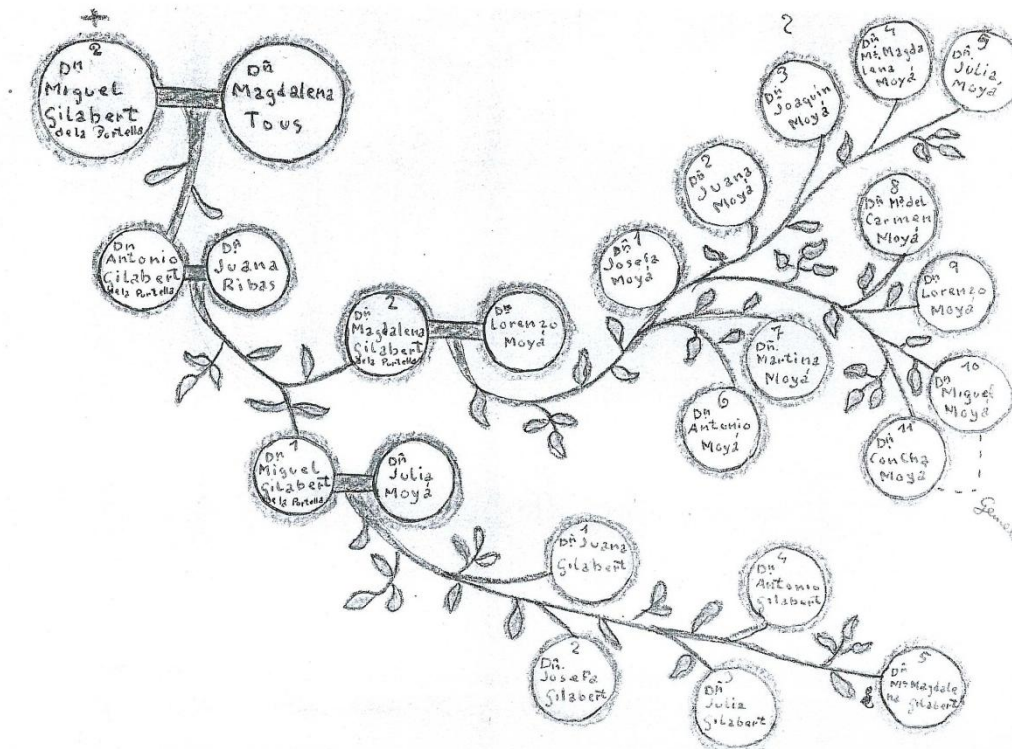 2
Dn
Miguel
Gilabert
de la Portella
Dña
Magdalena
Tous
Dn
Antonio
Gilabert
de la Portella
Dª
Juana
Ribas
2
Dñ
Magdalena
Gilabert
de la Portella
Dn
Lorenzo
Moyá
1
Dn
Miguel
Gilabert
de la Portella
Dñ
Julia
Moyá
2
1
Dñ
Josefa
Moyá
2
Dñ
Juana
Moyá
3
Dn
Joaquin
Moyá
4
Dñ
Mª Magda
lena
Moyá
5
Dñ
Julia
Moyá
6
Dn
Antonio
Moyá
7
Dñ.
Martina
Moyá
8
Dñ Mª del
Carmen
Moyá
9
Dn
Lorenzo
Moyá
10
Dn
Miguel
Moyá
11
Dñ
Concha
Moyá
1
Dñ Juana
Gilabert
2
Dñ.
Josefa
Gilabert
3
Dñ
Julia
Gilabert
4
Dn
Antonio
Gilabert
5
Dñ
Mª Magdale
na Gilabert